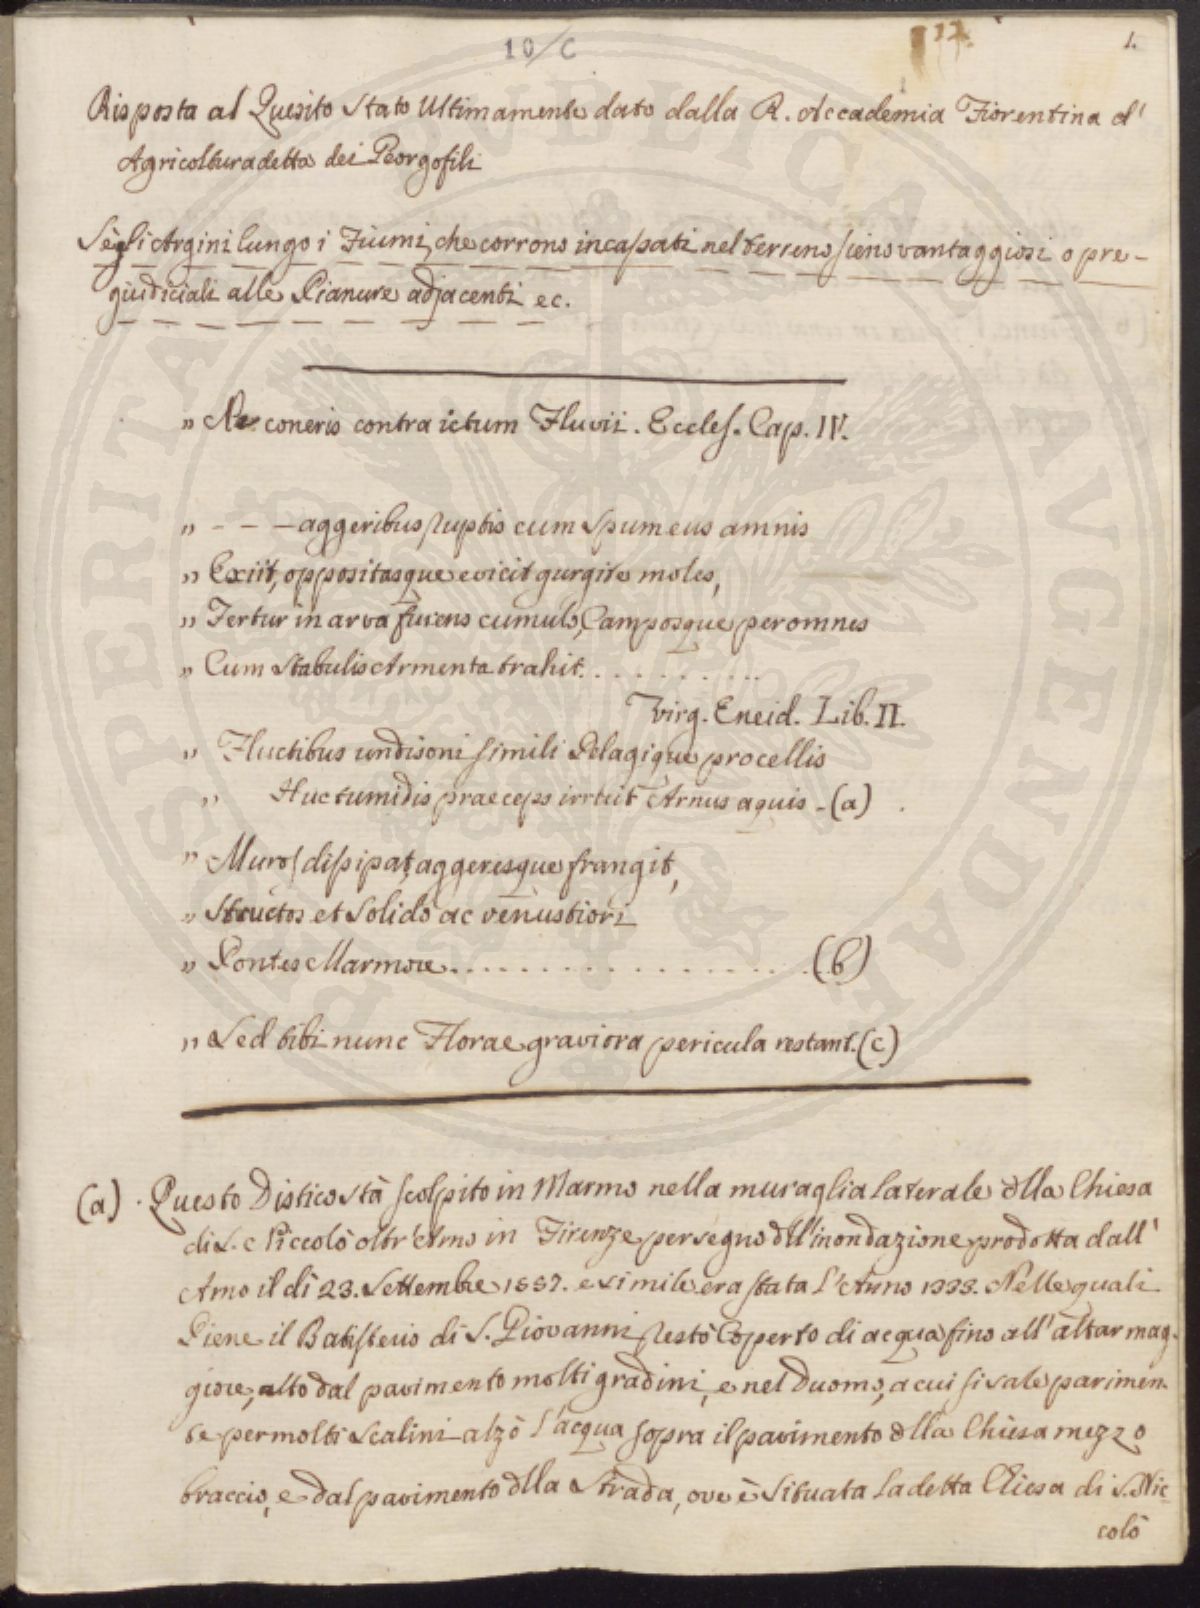 10/C
1.
Risposta al Quesito stato Ultimamente dato dalla R. Accademia Fiorentina d'
Agricoltura detta dei Georgofili
Se gli Argini lungo i Fiumi, che corrono incassati nel terreno sieno vantaggiosi o pre-
giudiciali alle Pianure adjacenti ec.
" Ne coneris contra ictum Fluvii. Eccles. Cap. IV.
" - - - aggeribus ruptis cum Spumeus amnis
" Exiit, oppositasque evicit gurgite moles,
" Fertur in arva furens cumulo, Camposque per omnes
" Cum Stabulis Armenta trahit. . . . . . . . . . .
Virg. Eneid. Lib. II.
" Fluctibus undisoni simili Pelagique procellis
" Huc tumidis praeceps irruit Arnus aquis - (a)
" Muros dissipat, aggeresque frangit,
" Structos et Solido ac venustiori
" Pontes Marmore . . . . . . . . . . . . . . . . . . (b)
" Sed tibi nunc Florae graviora pericula restant. (c)
(a). Questo Distico stà scolpito in Marmo nella muraglia laterale dlla Chiesa
di S. Niccolò oltr'Arno in Firenze per segno dll'inondazione prodotta dall'
Arno il dì 23. Settembre 1557. e simile era stata l'Anno 1333. Nelle quali
Piene il Batisterio di S. Giovanni restò Coperto di acqua fino all'altar mag-
giore, alto dal pavimento molti gradini, e nel Duomo, a cui si sale parimen-
te per molti Scalini alzò l'acqua sopra il pavimento dlla Chiesa mezzo
braccio, e dal pavimento dlla Strada, ove è Situata la detta Chiesa di S. Nic-
colò
PROSPERITATI PUBLICAE AVGENDAE